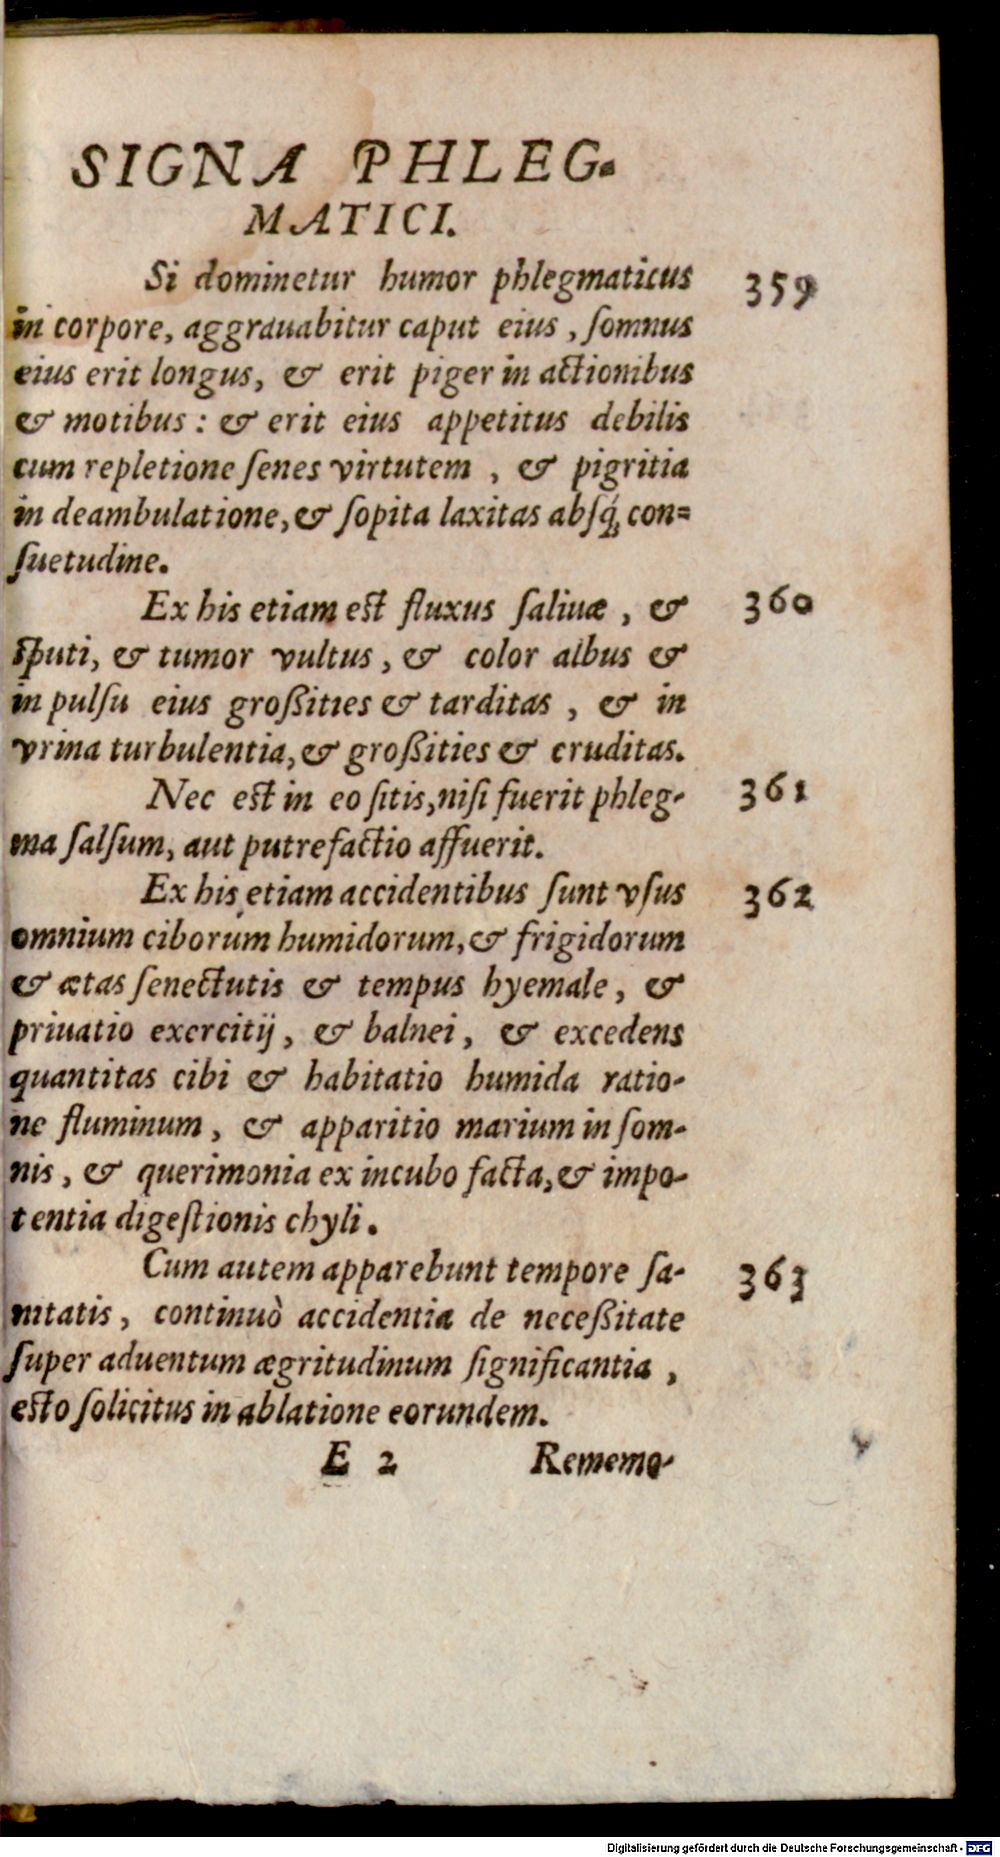 SIGNA PHLEG-
MATICI.
Si dominetur humor phlegmaticus 359
in corpore, aggrauabitur caput eius, ſomnus
eius erit longus, & erit piger in actionibus
& motibus: & erit eius appetitus debilis
cum repletione ſenes virtutem, & pigritia
in deambulatione, & ſopita laxitas abſq́; con=
ſuetudine.
Ex his etiam est fluxus ſaliuæ, & 360
ſputi, & tumor vultus, & color albus &
in pulſu eius großities & tarditas, & in
vrina turbulentia, & großities & cruditas.
Nec est in eo ſitis, niſi fuerit phleg- 361
ma ſalſum, aut putrefactio affuerit.
Ex his etiam accidentibus ſunt vſus 362
omnium ciborum humidorum, & frigidorum
& ætas ſenectutis & tempus hyemale, &
priuatio exercitij, & balnei, & excedens
quantitas cibi & habitatio humida ratio-
ne fluminum, & apparitio marium in ſom-
nis, & querimonia ex incubo facta, & impo-
tentia digeſtionis chyli.
Cum autem apparebunt tempore ſa- 363
nitatis, continuò accidentia de neceßitate
ſuper aduentum ægritudinum ſignificantia,
esto ſolicitus in ablatione eorundem.
E 2 Rememo-
Digitalisierung gefördert durch die Deutsche Forschungsgemeinschaft - DFG